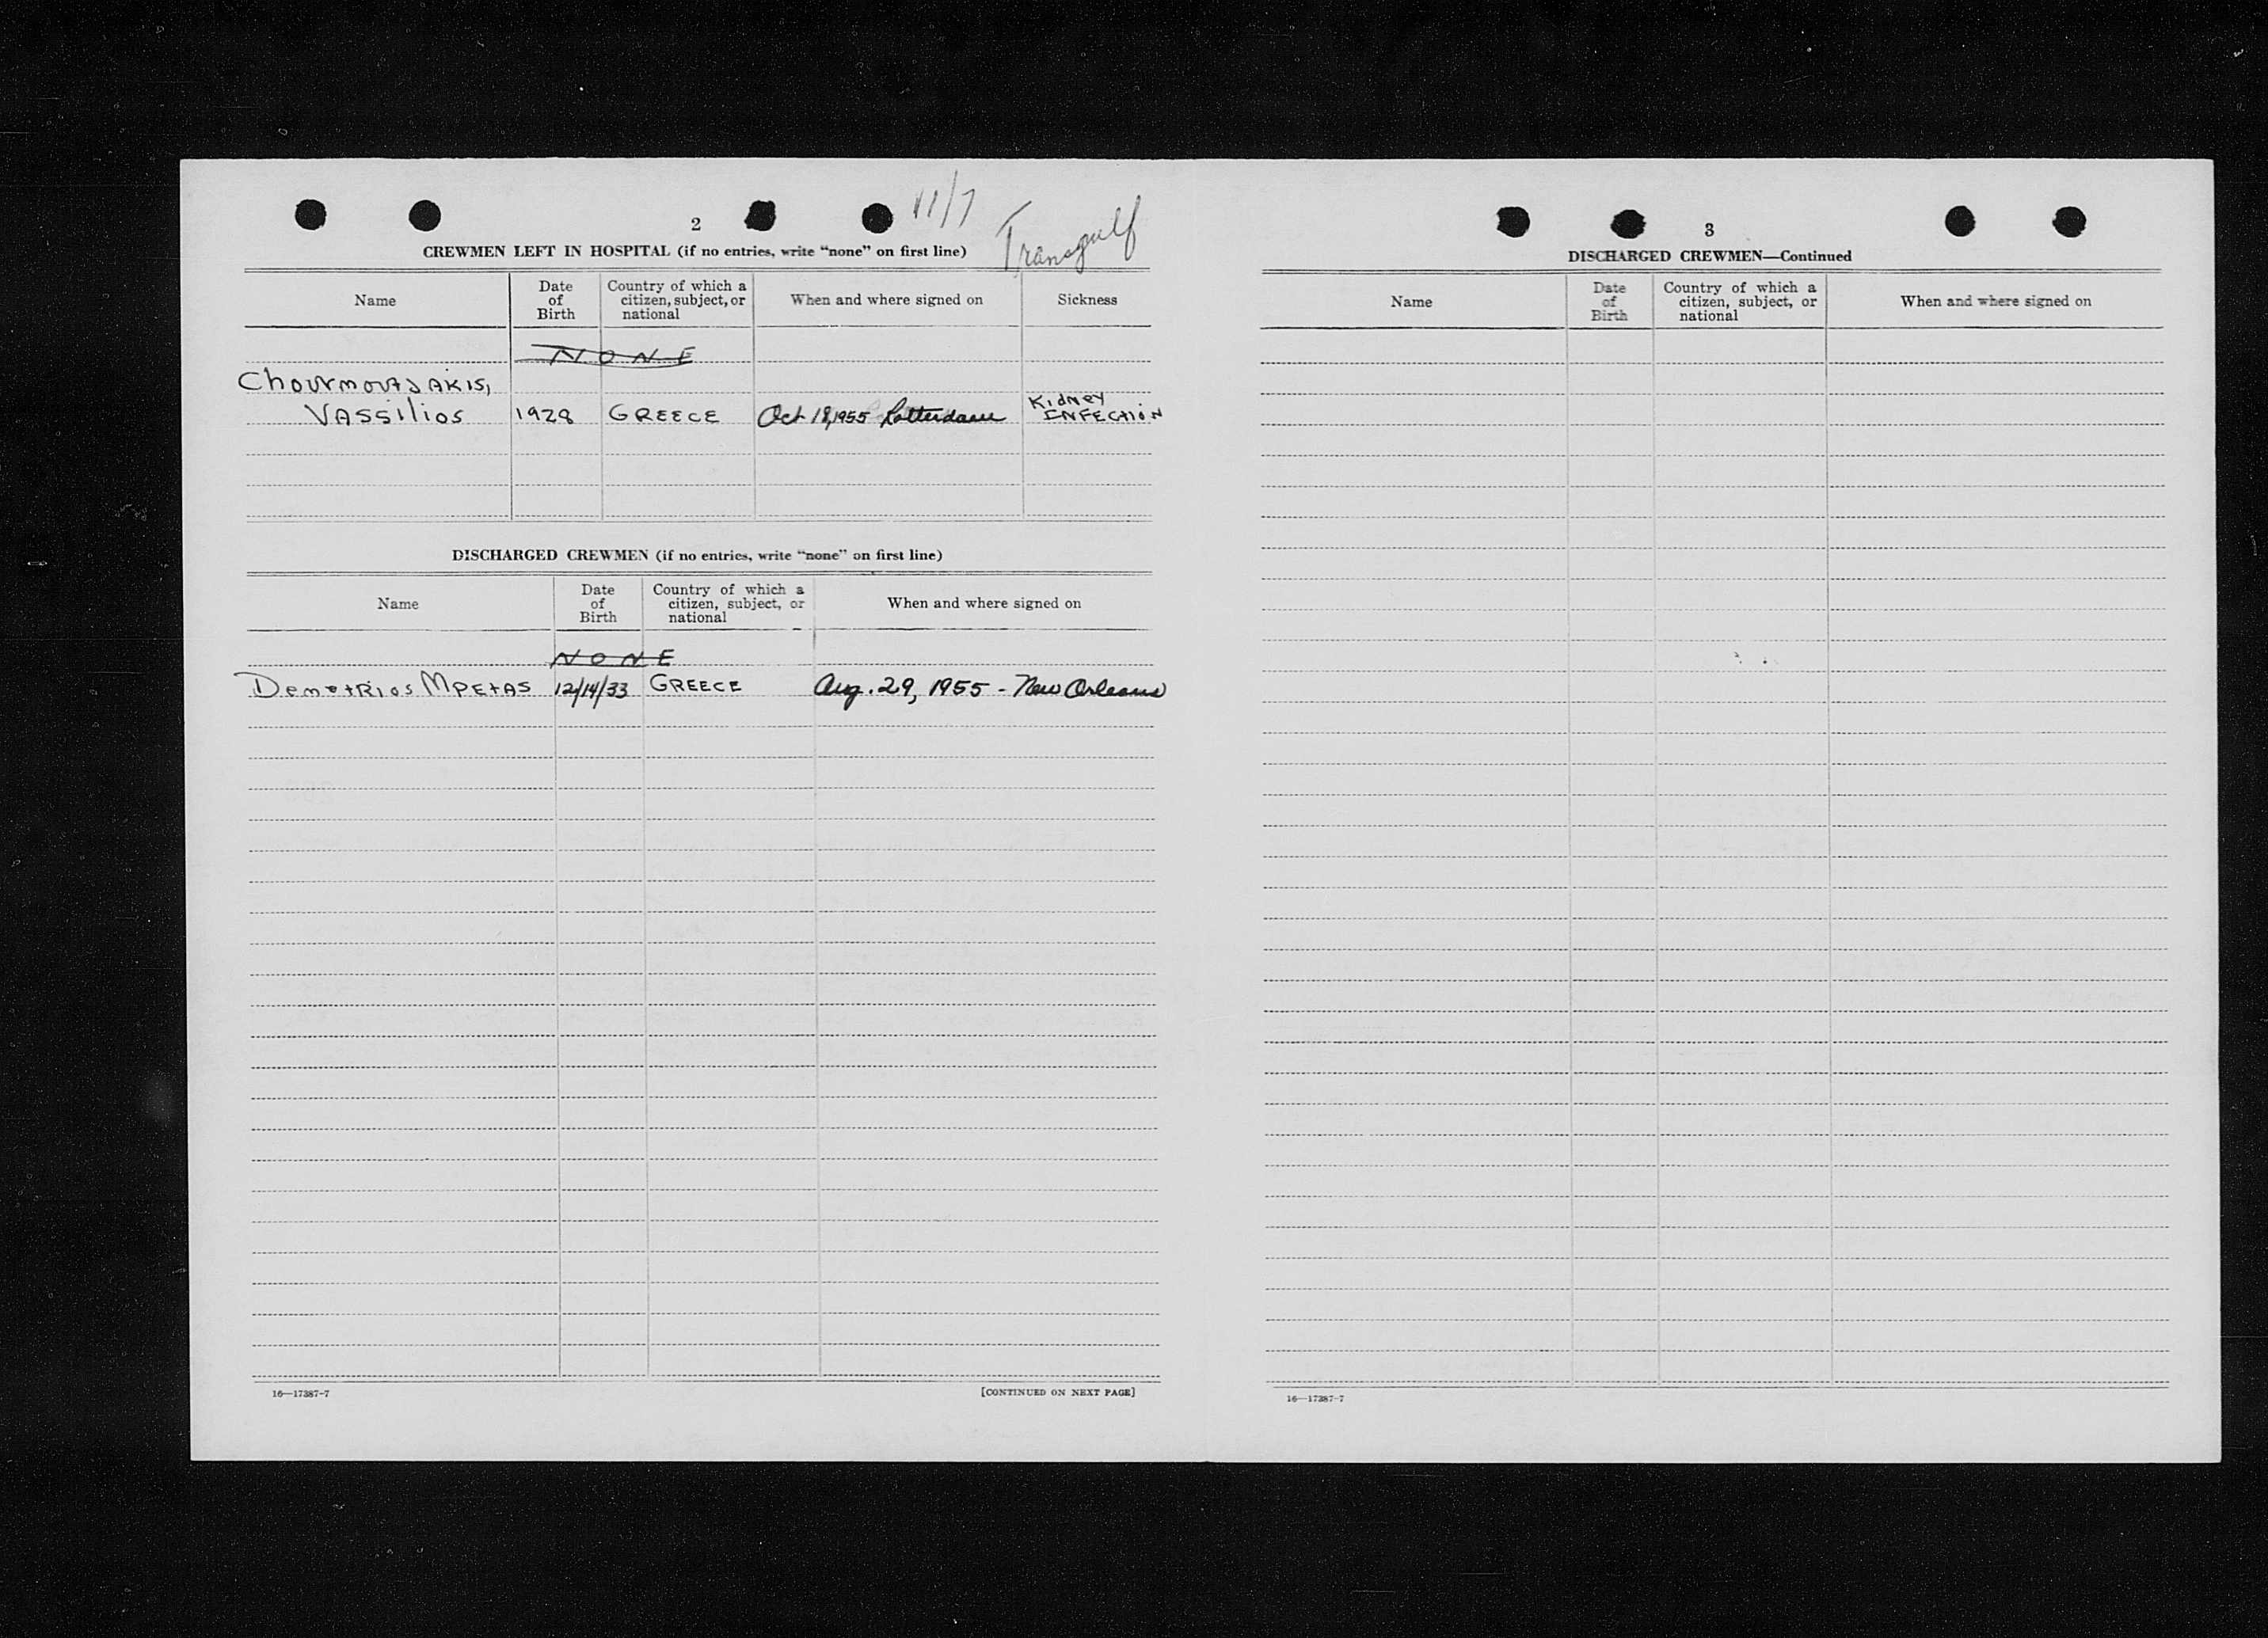 11/7
Transgulf
2
CREWMEN LEFT IN HOSPITAL (if no entries, write “none” on first line)
Name
Date of Birth
Country of which a citizen, subject, or national
When and where signed on
Sickness
NONE
Chourmoutsakis,
Vassilios 1928 GREECE Oct 18, 1955 Rotterdam Kidney INFECTION
DISCHARGED CREWMEN (if no entries, write “none” on first line)
Name
Date of Birth
Country of which a citizen, subject, or national
When and where signed on
NONE
Demetrios Mpetas 12/14/33 GREECE Aug. 29, 1955 - New Orleans
16—17387-7
[CONTINUED ON NEXT PAGE]
3
DISCHARGED CREWMEN—Continued
Name
Date of Birth
Country of which a citizen, subject, or national
When and where signed on
16—17387-7